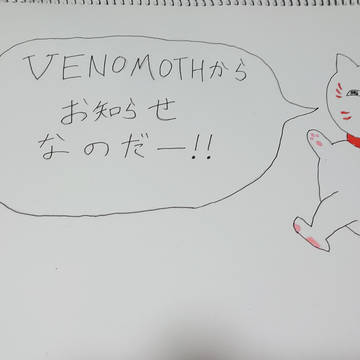 VENOMOTHから
お知らせ
なのだー!!